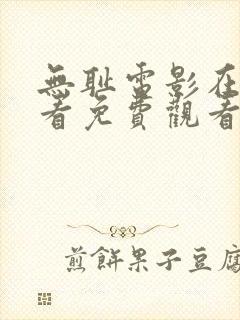 無耻電影在
看免費觀看
煎餅果子豆腐